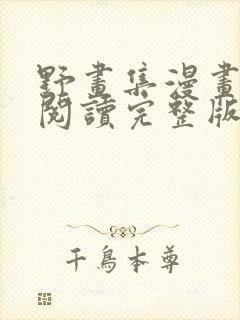 野畫集漫畫
閱讀完整版
千鳥本尊